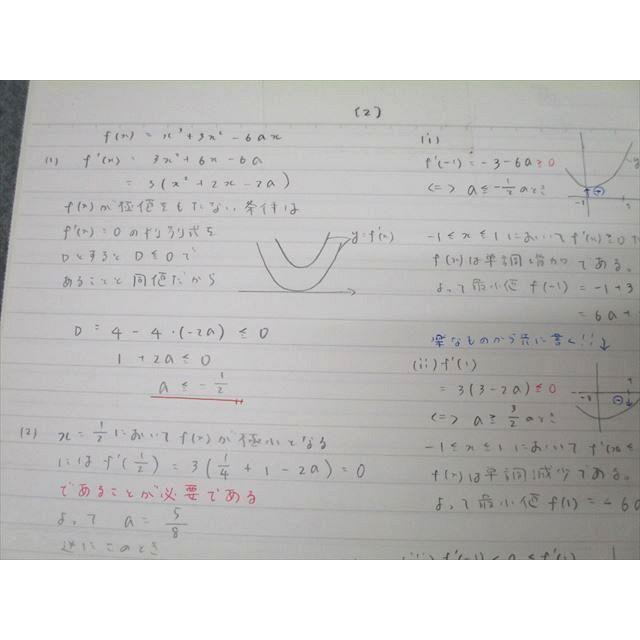 f(x) = x³+3x²-6ax
(1) f'(x) = 3x²+6x-6a
= 3(x²+2x-2a)
f(x)が極値をもたない条件は
f'(x)=0の判別式を
DとするとD≦0で
あることと同値だから
y=f'(x)
D = 4-4・(-2a) ≦ 0
1+2a ≦ 0
a ≦ -1/2
(2) x=1/2においてf(x)が極小となる
にはf'(1/2) = 3(1/4+1-2a)=0
であることが必要である
よって a = 5/8
逆にこのとき
(2)
(i)
f'(-1) = -3-6a≧0
<=> a≦-1/2のとき
-1
-1≦x≦1においてf'(x)≧0
f(x)は単調増加である。
よって最小値 f(-1) = -1+3
= 6a+
楽なものから先に書く!!↓
(ii) f'(1)
= 3(3-2a)≦0
<=> a≧3/2のとき
-1≦x≦1においてf'(x)≦
f(x)は単調減少である。
よって最小値f(1)=-6a
(iii) f'(-1)<0≦f'(1)